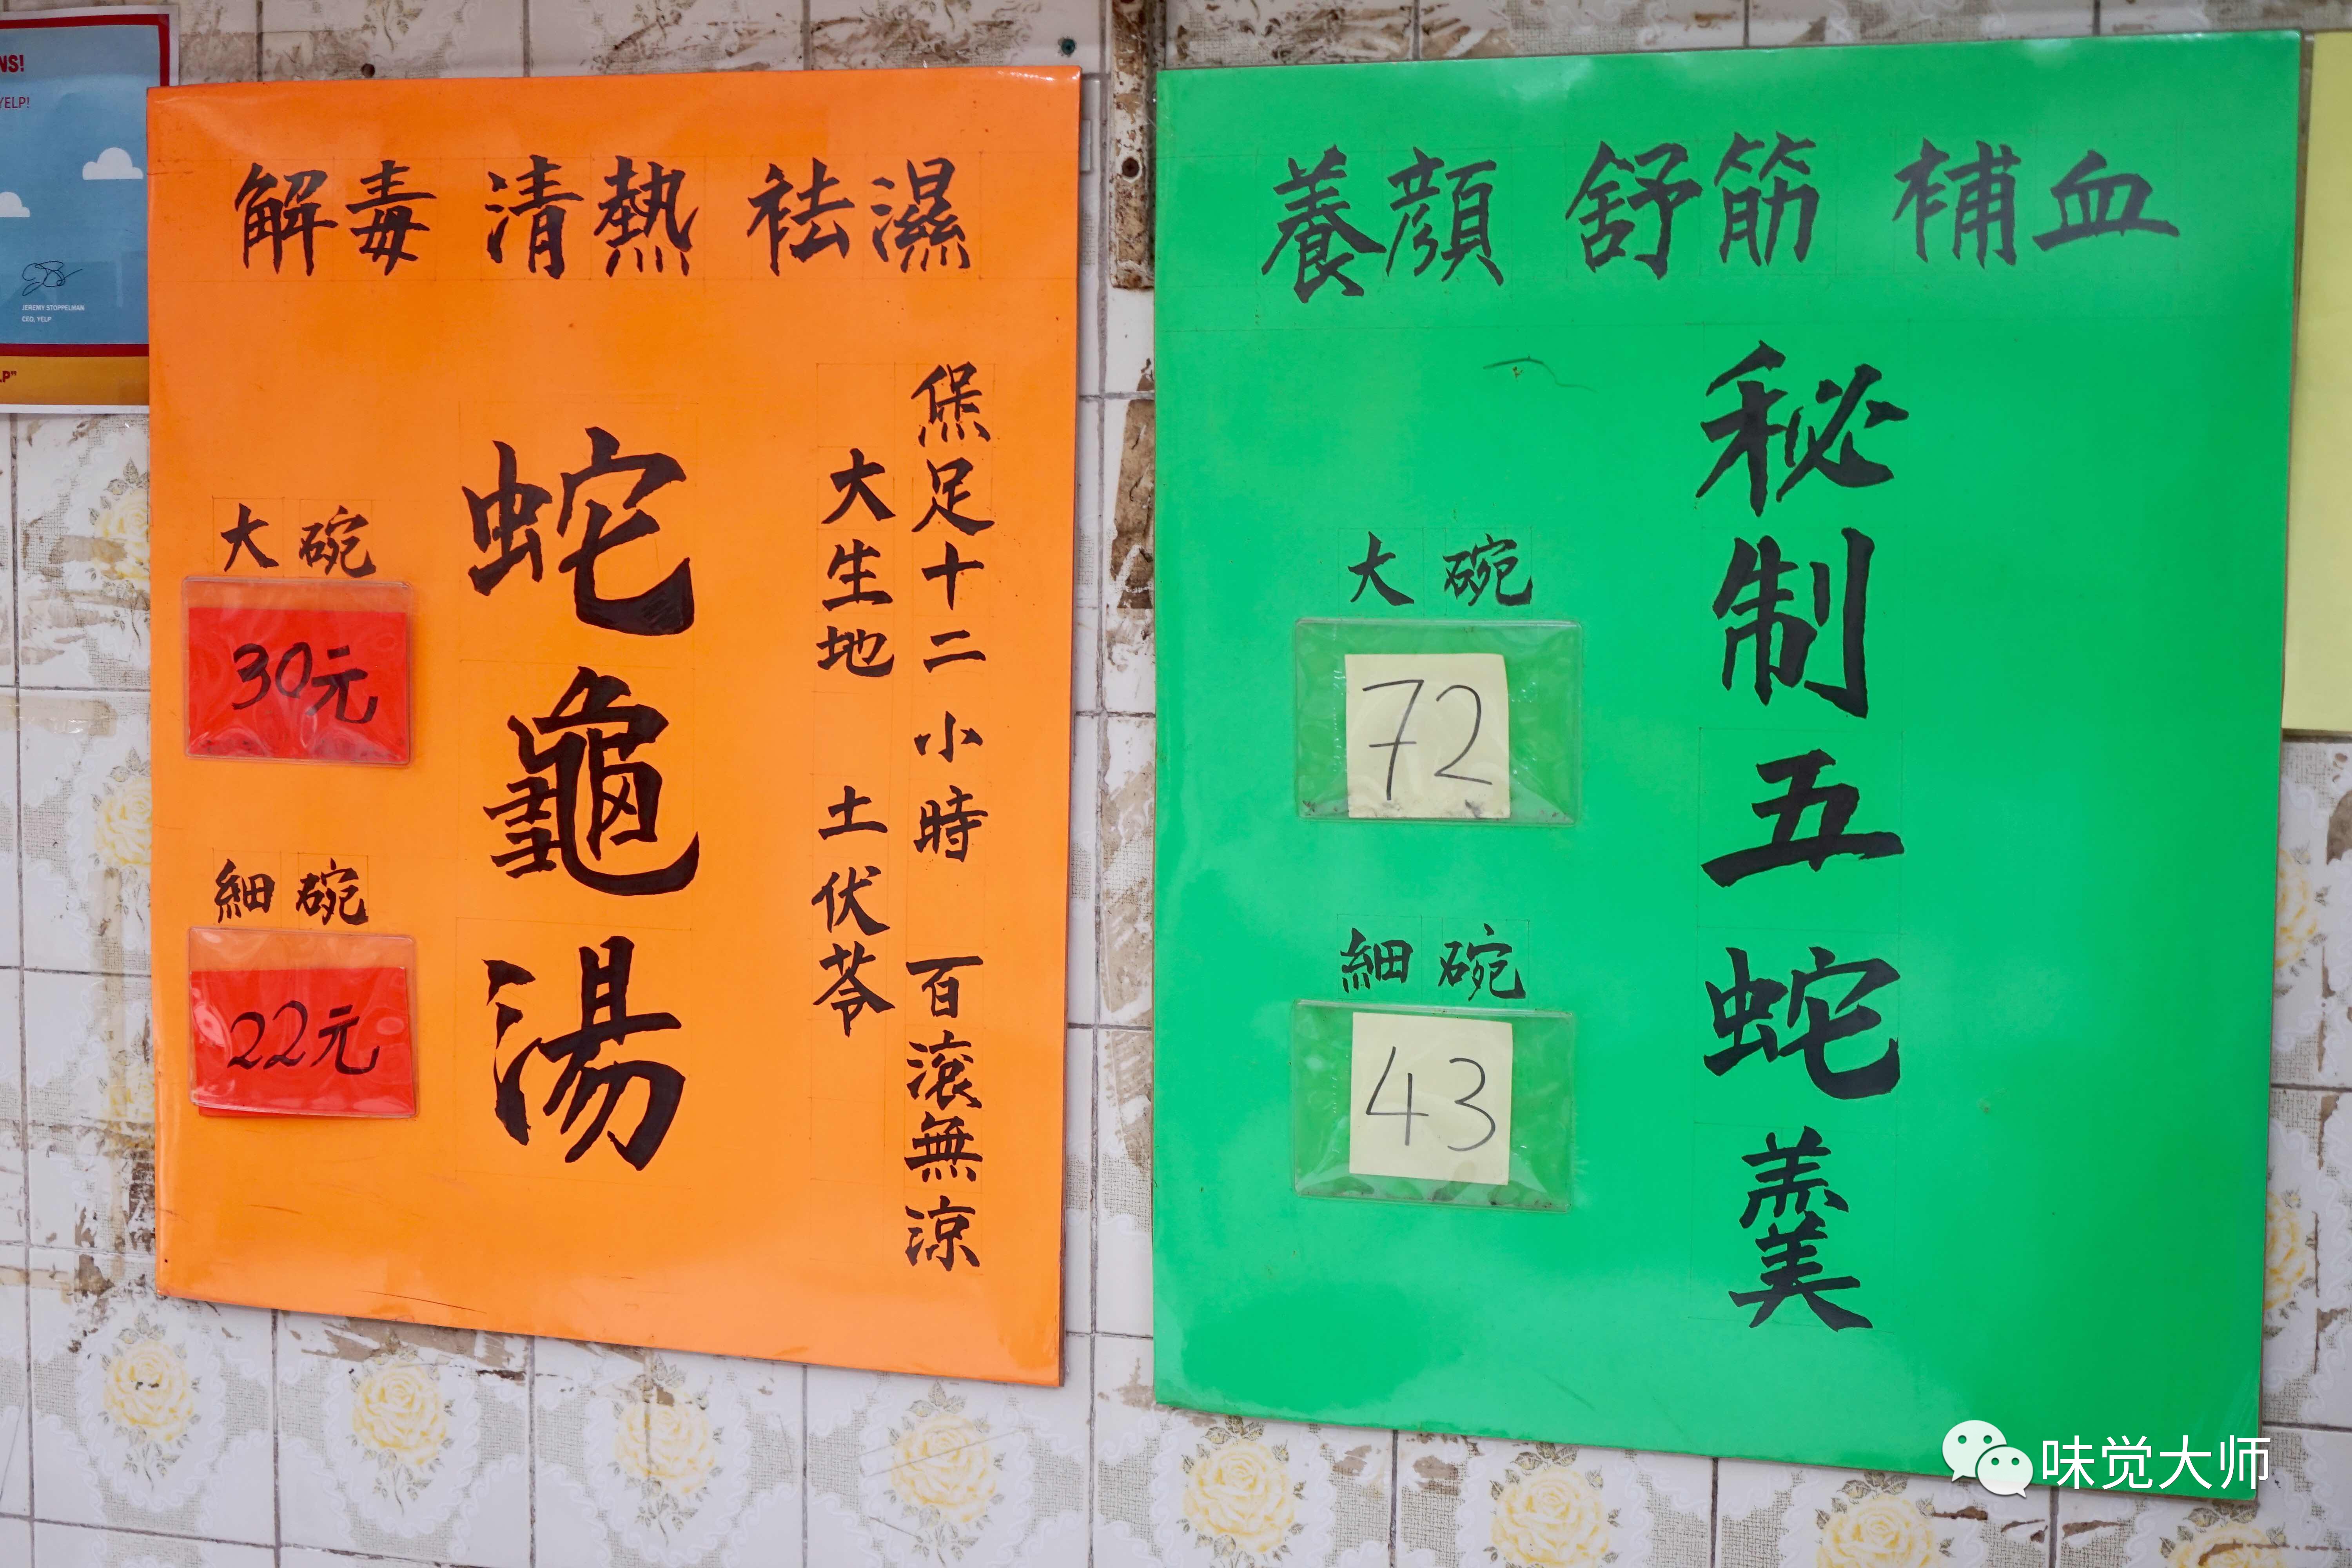 NS!
YELP!
JEREMY STOPPELMAN
CEO, YELP
LP"
解毒 清熱 袪濕
煲足十二小時 百滾無涼
大生地 土伏苓
蛇龜湯
大碗
30元
細碗
22元
養顔 舒筋 補血
秘制五蛇羹
大碗
72
細碗
43
味觉大师